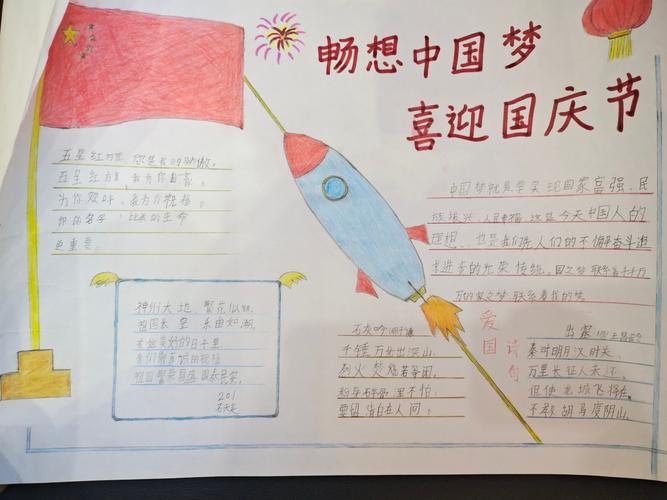 畅想中国梦
喜迎国庆节
五星红旗,您是我的骄傲。
五星红旗,我为你自豪。
为你欢呼,我为你祝福。
你的名字,比我的生命
更重要。
中国梦就是要实现国家富强、民
族振兴、人民幸福
理想,也是我们先人们的不懈奋斗追
求进步的光荣传统。国之梦联系着千千万
万的家之梦联系着我的梦。
神州大地 繁花似锦,
祖国长空 乐曲如潮。
在这美好的日子里
我们最真诚的祝福
祖国繁荣昌盛
201
爱国诗句
石灰吟 明于谦
千锤万击出深山,
烈火焚烧若等闲。
粉骨碎骨浑不怕
要留清白在人间。
出塞
秦时明月汉时关,
万里长征人未还。
但使龙城飞将在,
不教胡马度阴山。